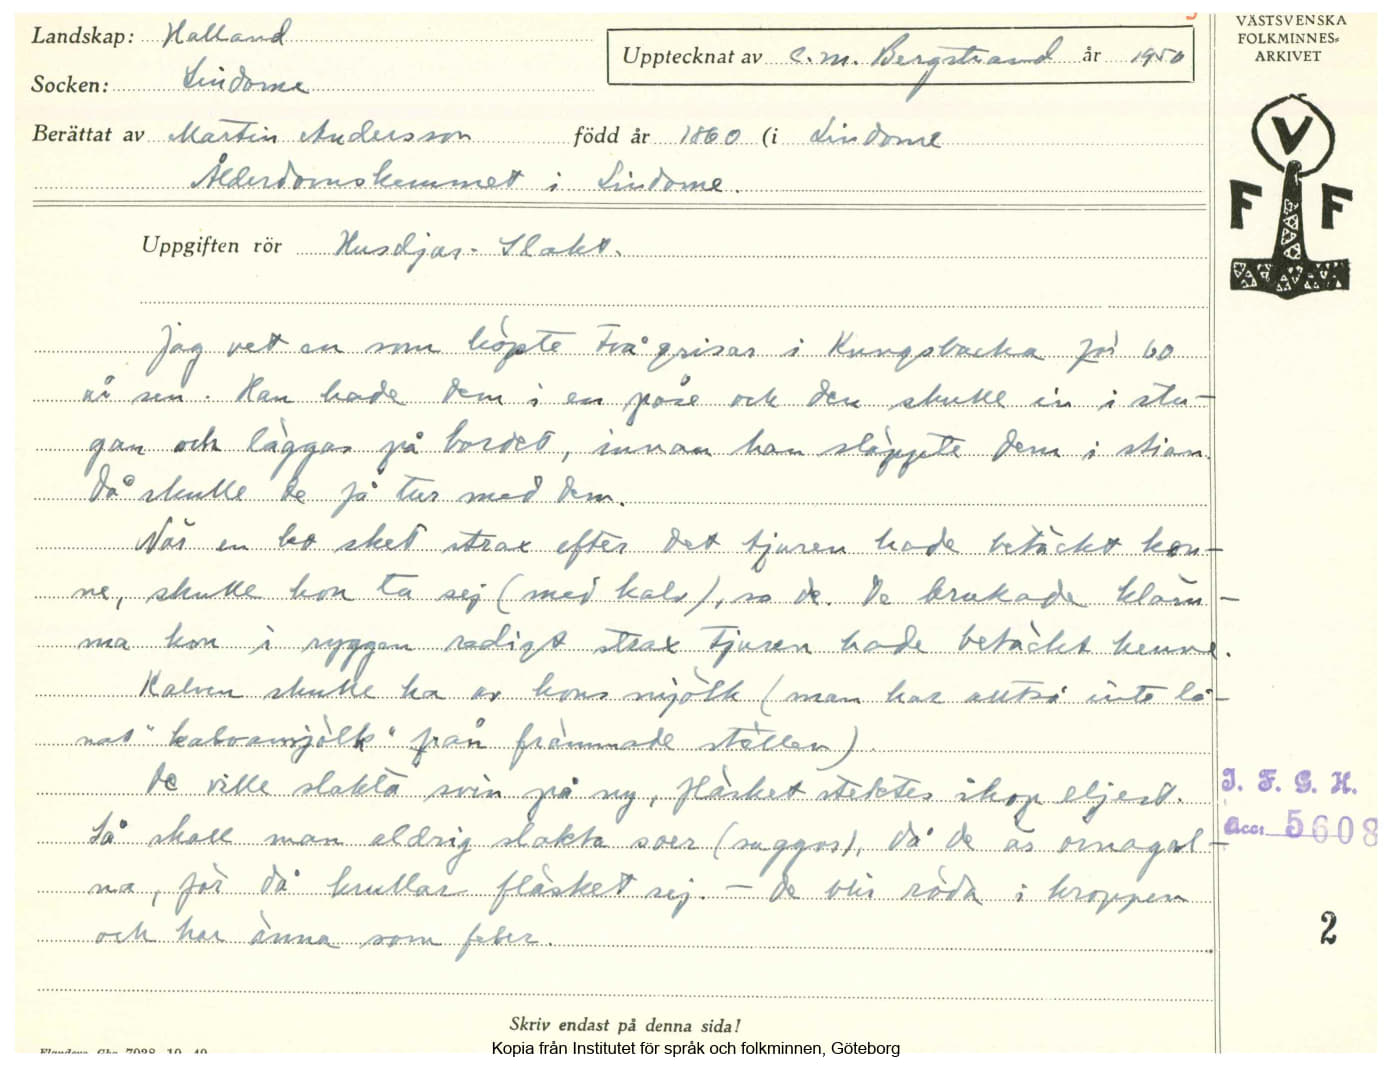 Landskap: Halland
Socken: Lindome
Upptecknat av C. M. Bergstrand år 1950
VÄSTSVENSKA
FOLKMINNES-
ARKIVET
V
F F
Berättat av Martin Andersson född år 1860 (i Lindome
Ålderdomshemmet i Lindome.
Uppgiften rör Husdjur. Slakt.
Jag vet en som köpte två grisar i Kungsbacka för 60
år sen. Han hade dem i en påse och den skulle in i stu-
gan och läggas på bordet, innan han släppte dem i stian.
Då skulle de få tur med dem.
När en lot sket strax efter det tjuren hade betäckt kon-
ne, skulle hon ta sej (med kalv), sa de. De brukade kläm-
ma kon i ryggen redigt strax tjuren hade betäckt henne.
Kalven skulle ha av kons mjölk (man har alltså inte lå-
nat "kalvamjölk" från främmade ställen).
De ville slakta svin på ny, fläsket stektes ihop eljest.
Så skall man aldrig slakta soer (suggor), då de är ornagal-
na, för då krullar fläsket sej. - De blir röda i kroppen
och har änna som feber.
I. F. G. H.
acc: 5608
2
Skriv endast på denna sida!
Kopia från Institutet för språk och folkminnen, Göteborg